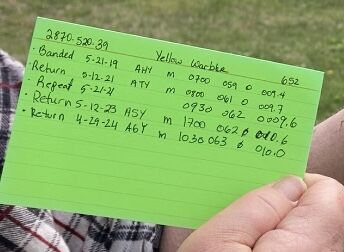 2870-520-39 Yellow Warbler 652
· Banded 5-21-19 AHY m 0700 059 0 009.4
· Return 5-12-21 ATY m 0800 061 0 009.7
· Repeat 5-21-21 0930 062 0009.6
· Return 5-12-23 A5Y m 1700 062 ø 010.6
· Return 4-29-24 A6Y m 1030 063 ø 010.0